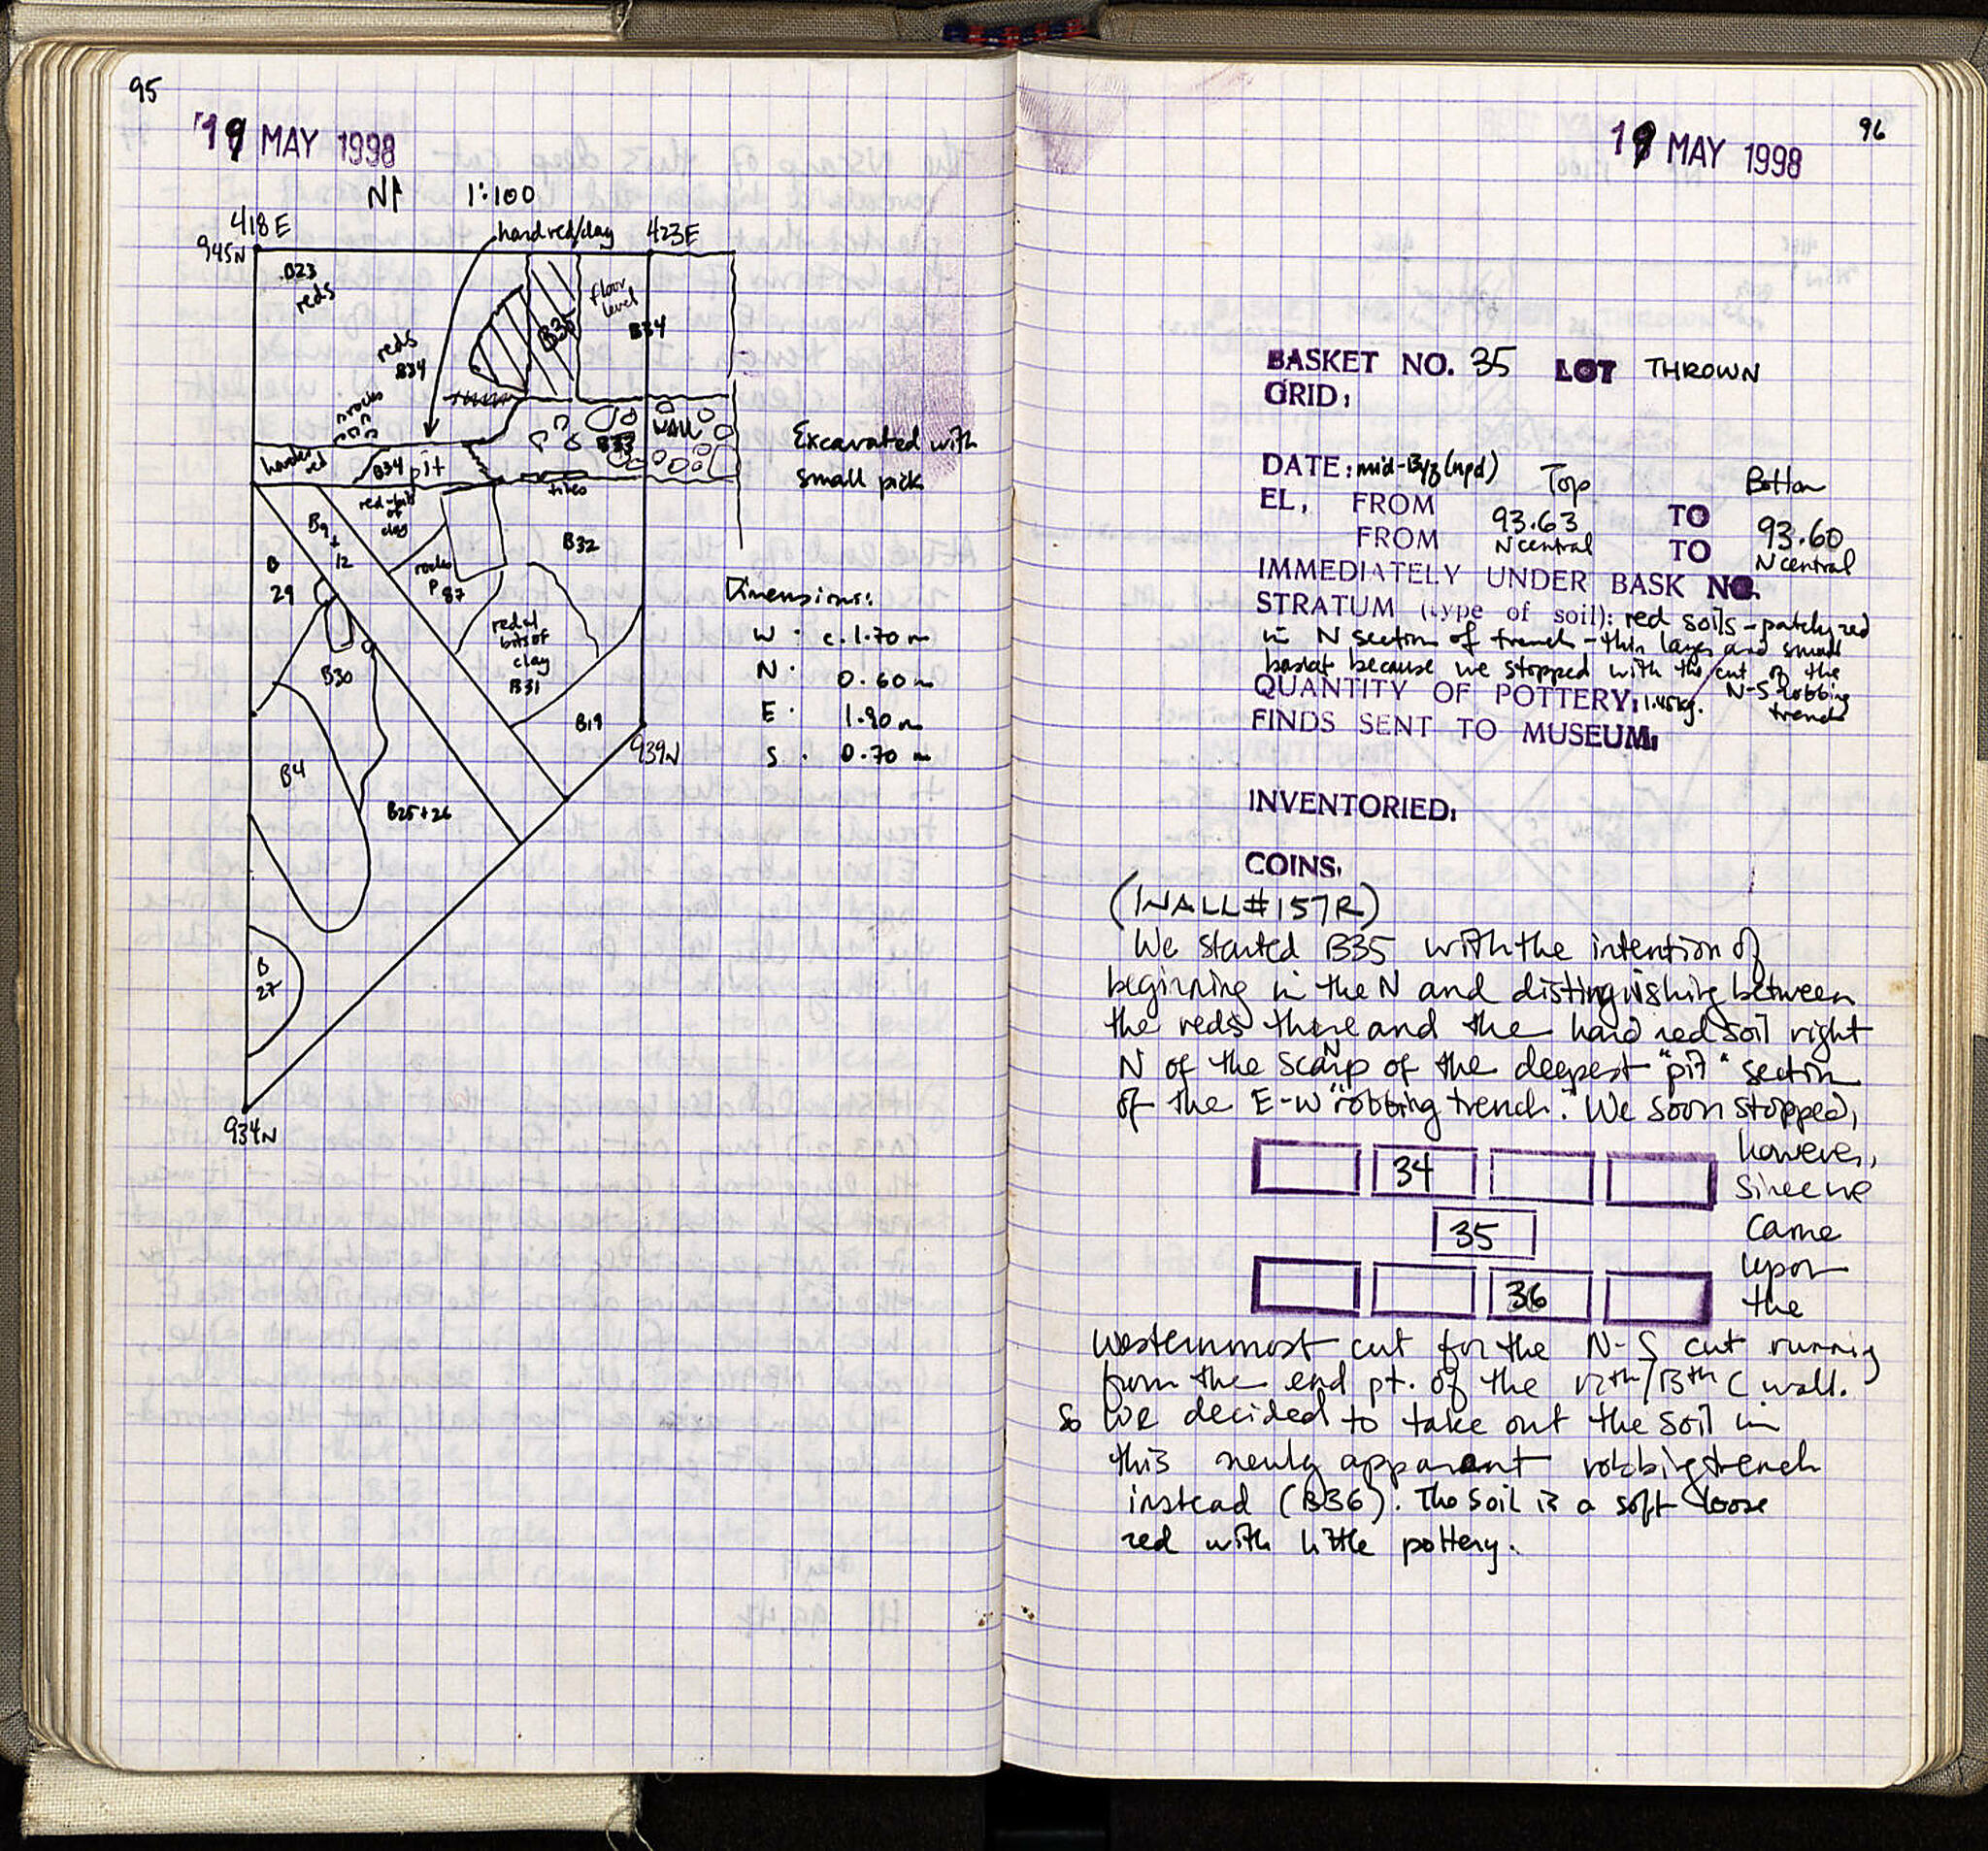 95
19 MAY 1998
N 1:100
418E
hard red/clay
423E
945N
B23
reds
floor
level
B35
B34
reds
B34
rocks
WALL
B33
harder
red
B34
pit
tiles
Excavated with
small pick
red-bits
of
clay
B9
+
12
B32
B
29
rocks
P. 87
red w/
bits of
clay
B31
Dimensions:
W : c. 1.70 m
N . 0.60 m
E . 1.90 m
S . 0.70 m
B30
B19
939N
B4
B25+26
B
27
934N
96
19 MAY 1998
BASKET NO. 35 LOT THROWN
GRID:
DATE: mid-Byz (npd) Top Bottom
EL, FROM 93.63 TO 93.60
FROM N central TO N central
IMMEDIATELY UNDER BASK NO.
STRATUM (type of soil): red soils - patchy red
in N section of trench - thin layer and small
basket because we stopped with the cut of the
N-S robbing
trench
QUANTITY OF POTTERY: 1.45kg.
FINDS SENT TO MUSEUM:
INVENTORIED:
COINS.
(WALL #157R)
We started B35 with the intention of
beginning in the N and distinguishing between
the reds there and the hard red soil right
N of the N scarp of the deepest "pit" section
of the E-W "robbing trench." We soon stopped,
however,
since we
came
upon
the
34
35
36
westernmost cut for the N-S cut running
from the end pt. of the 12th/13th C wall.
So we decided to take out the soil in
this newly apparent robbing trench
instead (B36). The soil is a soft loose
red with little pottery.